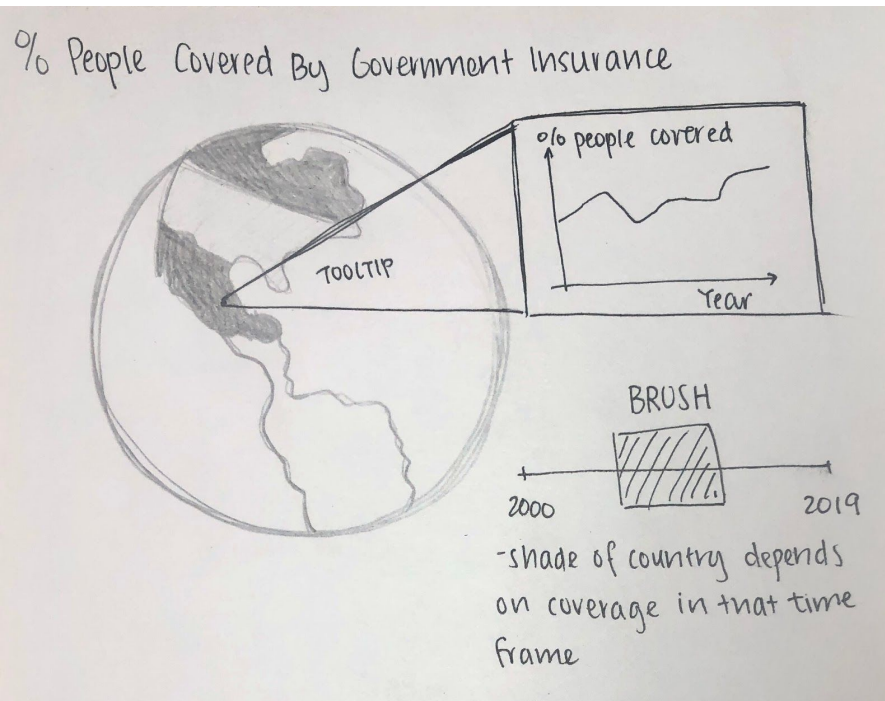 % People Covered By Government Insurance
% people covered
TOOLTIP
Year
BRUSH
2000
2019
-shade of country depends
on coverage in that time
frame